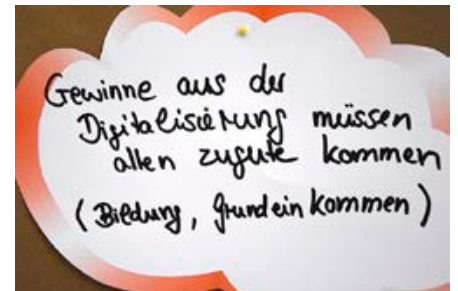 Gewinne aus der
Digitalisierung müssen
allen zugute kommen
(Bildung, Grundeinkommen)